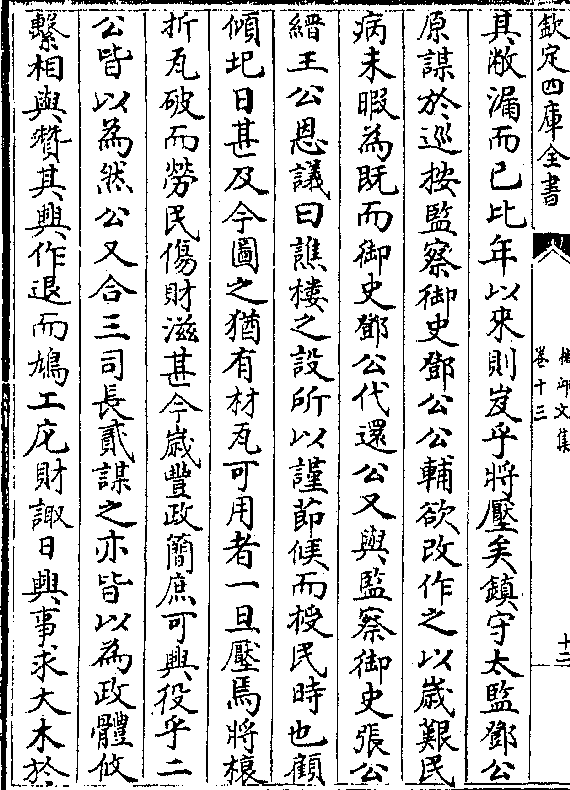 欽定四庫全書
卷十三
其敝漏而已比年以來則岌乎將壓矣鎮守太監鄧公
原謀於巡按監察御史鄧公公輔欲改作之以歲艱民
病未暇為既而御史鄧公代還公又與監察御史張公
縉王公恩議曰譙樓之設所以謹節候而授民時也顧
傾圮日甚及今圖之猶有材瓦可用者一旦壓焉將榱
折瓦破而勞民傷財滋甚今歲豐政簡庶可興役乎二
公皆以為然公又合三司長貳謀之亦皆以為政體攸
繫相與贊其興作退而鳩工庀財諏日興事求大木於